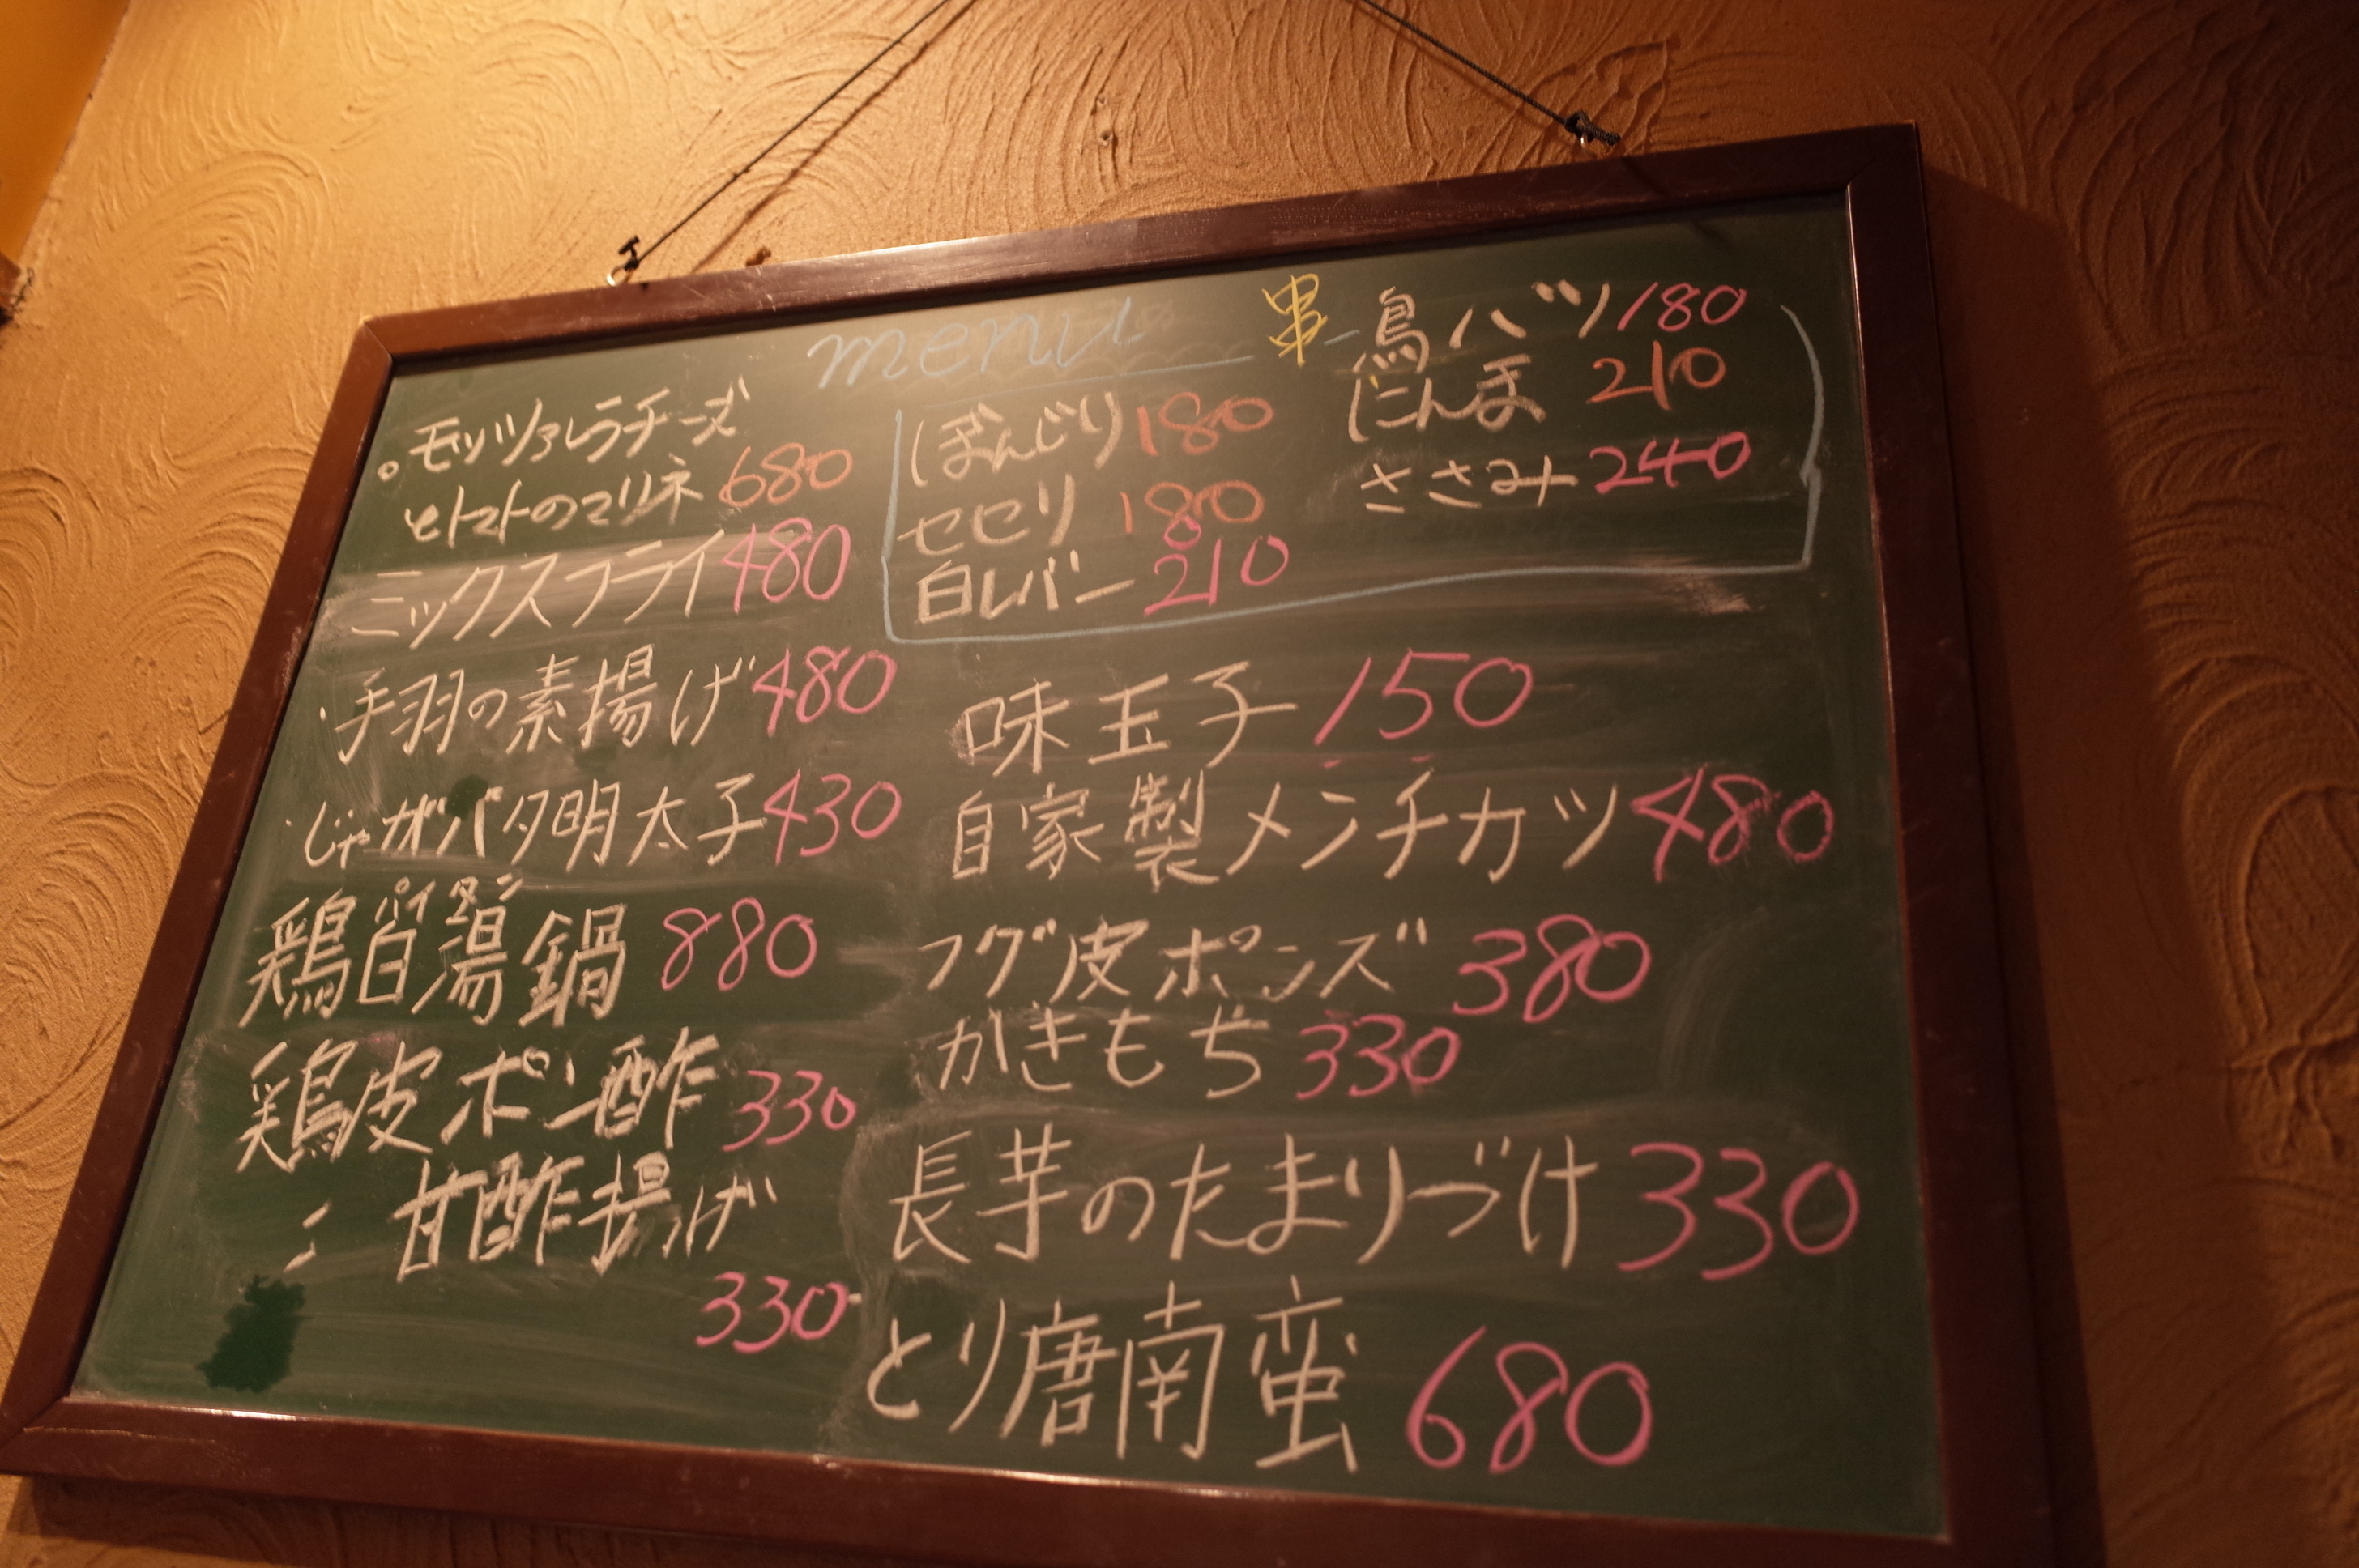 menu
モッツァレラチーズ
とトマトのマリネ 680
ミックスフライ 480
・手羽の素揚げ 480
・じゃがバタ明太子 430
パイタン
鶏白湯鍋 880
鶏皮ポン酢 330
〃 甘酢揚げ
330
串
ぼんじり 180
セセリ 180
白レバー 210
鳥ハツ 180
にんま 210
ささみ 240
味玉子 150
自家製メンチカツ 480
フグ皮ポンズ 380
かきもち 330
長芋のたまりづけ 330
とり唐南蛮 680